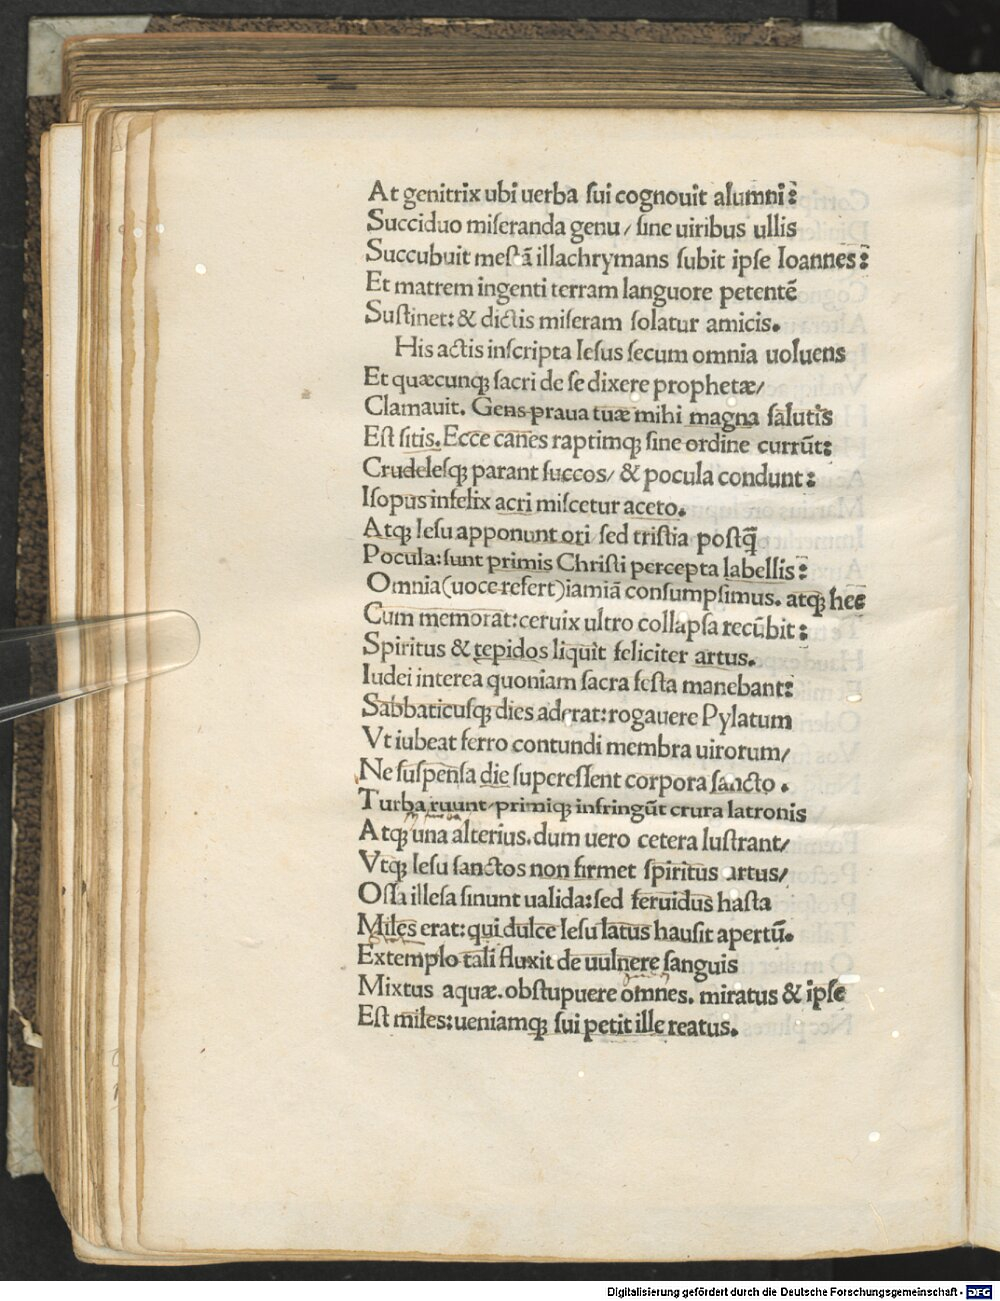 At genitrix ubi uerba ſui cognouit alumni:
Succiduo miſeranda genu/ ſine uiribus ullis
Succubuit meſtā illachrymans ſubit ipſe Ioannes:
Et matrem ingenti terram languore petentē
Suſtinet: & dictis miſeram ſolatur amicis.
His actis inſcripta Ieſus ſecum omnia uoluens
Et quæcunqꝫ ſacri de ſe dixere prophetæ/
Clamauit. Gens praua tuæ mihi magna ſalutis
Eſt ſitis. Ecce canes raptimqꝫ ſine ordine currūt:
Crudeleſqꝫ parant ſuccos/ & pocula condunt:
Iſopus infelix acri miſcetur aceto.
Atqꝫ Ieſu apponunt ori/ ſed triſtia poſtq̄
Pocula: ſunt primis Chriſti percepta labellis:
Omnia (uoce refert) iamiā conſumpſimus. atqꝫ hec
Cum memorat: ceruix ultro collapſa recūbit:
Spiritus & tepidos liquit feliciter artus.
Iudei interea quoniam ſacra feſta manebant:
Sabbaticuſqꝫ dies aderat: rogauere Pylatum
Vt iubeat ferro contundi membra uirorum/
Ne ſuſpenſa die ſupereſſent corpora ſancto.
Turba ruunt/ primiqꝫ infringūt crura latronis
Atqꝫ una alterius. dum uero cetera luſtrant/
Vtqꝫ Ieſu ſanctos non firmet ſpiritus artus/
Oſſa illeſa ſinunt ualida: ſed feruidus haſta
Miles erat: qui dulce Ieſu latus hauſit apertū.
Extemplo tali fluxit de uulnere ſanguis
Mixtus aquæ. obſtupuere omnes. miratus & ipſe
Eſt miles: ueniamqꝫ ſui petit ille reatus.
Digitalisierung gefördert durch die Deutsche Forschungsgemeinschaft - DFG